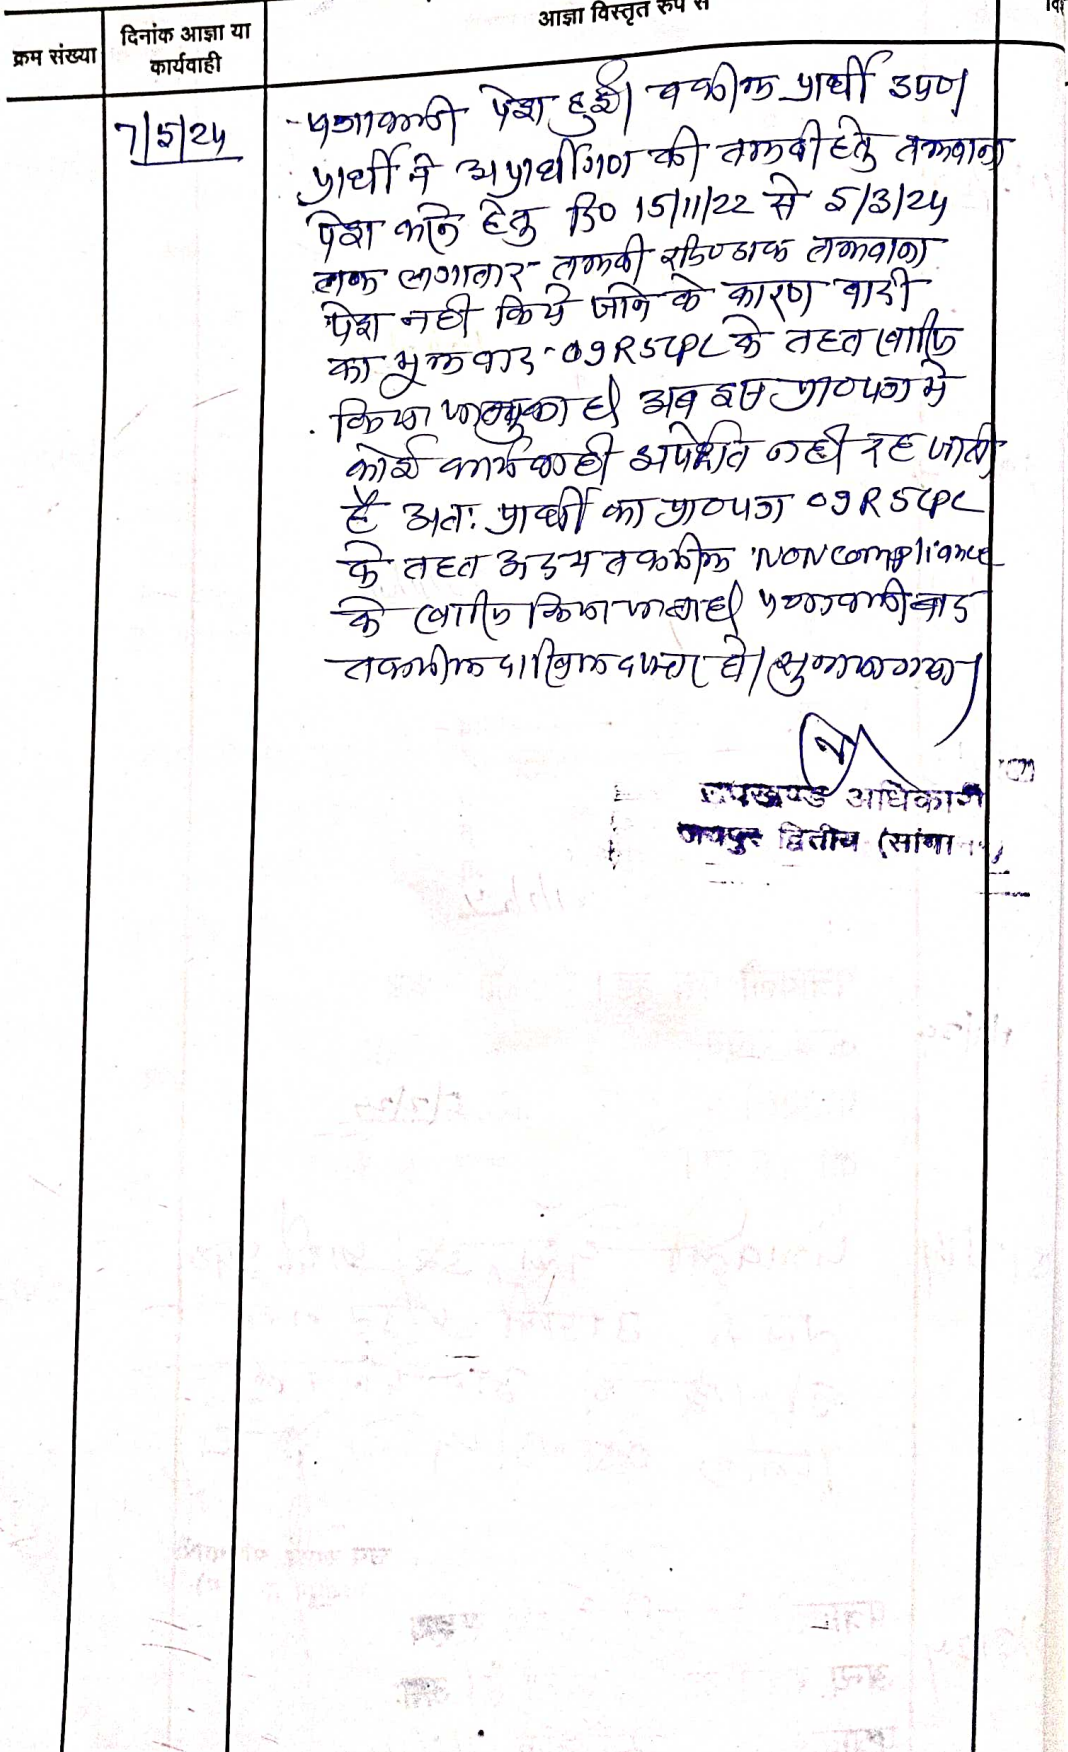 आज्ञा विस्तृत रूप से
क्रम संख्या
दिनांक आज्ञा या
कार्यवाही
7/5/24
पत्रावली पेश हुई। वकील प्रार्थी उप०।
प्रार्थी ने अप्रार्थीगण की तलबी हेतु तलवाना
पेश करने हेतु दि० 15/11/22 से 5/3/24
तक लगातार तलबी रजि० डाक तलवाना
पेश नहीं किये जाने के कारण वादी
का मूल वाद 09R5CPC के तहत खारिज
किया जा चुका है। अब इस प्रा०पत्र में
कोई कार्यवाही अपेक्षित नहीं रह जाती
है अतः प्रार्थी का प्रा०पत्र 09R5CPC
के तहत अदम तकमील NON compliance
के खारिज किया जाता है। पत्रावली बाद
तकमील दाखिल दफ्तर हो। सुनाया गया।
उपखण्ड अधिकारी
जयपुर द्वितीय (सांगा